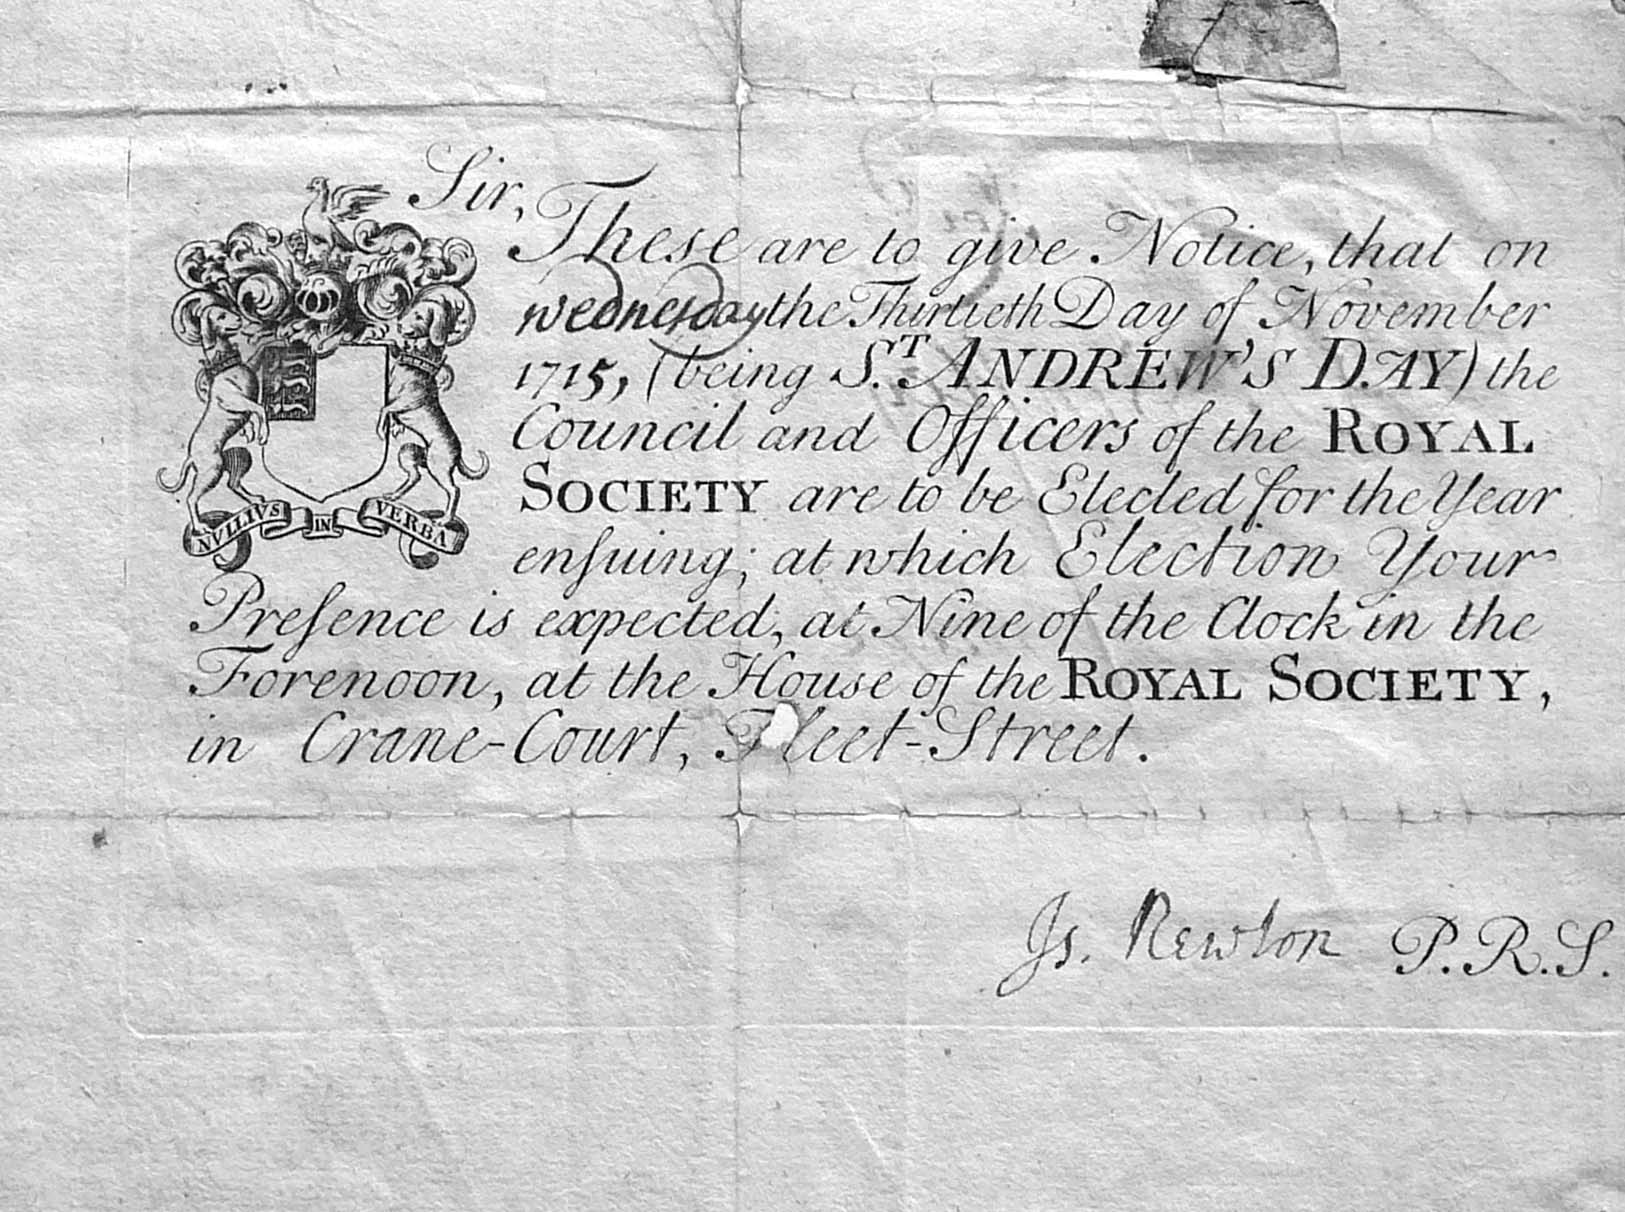 Sir,
These are to give Notice, that on
wednesday the Thirtieth Day of November
1715, (being S.T ANDREW'S DAY) the
Council and Officers of the ROYAL
SOCIETY are to be Elected for the Year
enſuing; at which Election Your
Preſence is expected, at Nine of the Clock in the
Forenoon, at the House of the ROYAL SOCIETY,
in Crane-Court, Fleet-Street.
NVLLIVS IN VERBA
Is. Newton P.R.S.